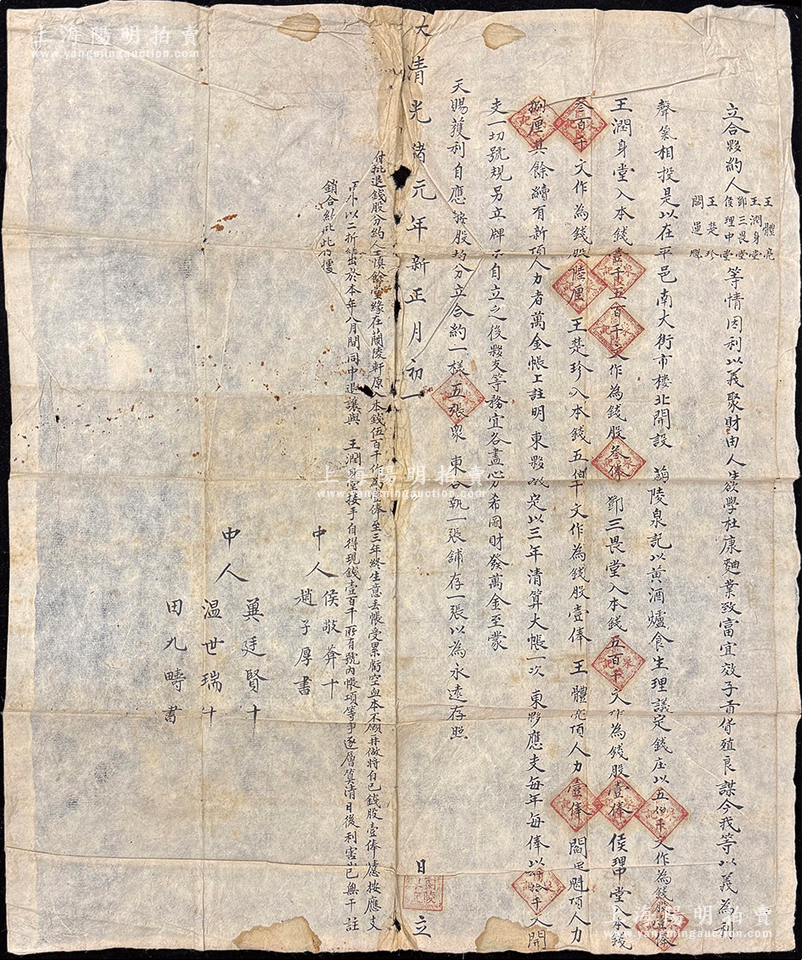 立合夥約人
王體亮
王潤身堂
鄧三畏堂
侯理中堂
王楚珍
閻運魁
等情因利以義聚財由人生欲學杜康麯業致富宜效子貢貨殖良謀今我等以義為利
聲氣相投是以在平邑南大街市樓北開設 蘭陵泉記以黃酒爐食生理議定錢庄以五伯千文作為錢股壹俸
王潤身堂入本錢壹千五百千文作為錢股叁俸 鄧三畏堂入本錢五百千文作為錢股壹俸 侯理中堂入本錢
叁百千文作為錢股陸厘 王楚珍入本錢五伯千文作為錢股壹俸 王體亮頂人力壹俸 閻運魁頂人力
捌厘其餘續有新頂人力者萬金帳上註明 東夥議定以三年清算大帳一次 東夥應支每年每俸以 千文開
支一切號規另立牌示自立之後夥友等務宜各盡心力希圖財發萬金至蒙
天賜獲利自應按股均分立合約一樣五張眾 東各執一張鋪存一張以為永遠存照
大清光緒元年新正月初一日 立
付批退錢股分約人王慎餘堂緣在蘭陵軒原入本錢伍百千作為壹俸至三年終生意丟帳受累虧空血本不願再做將自己錢股壹俸應按應支
以二折 出於本年八月間同中退讓與 王潤身堂接手自得現錢壹百千所有號內帳項等事逐層算清日後利害與己無干註
銷合 此
中人 侯敬
趙子厚書
中人 冀廷賢十
溫世瑞十
田九疇書
上海陽明拍賣
www.yangmingauction.com
上海陽明拍賣
www.yangmingauction.com
上海陽明拍賣
www.yangmingauction.com